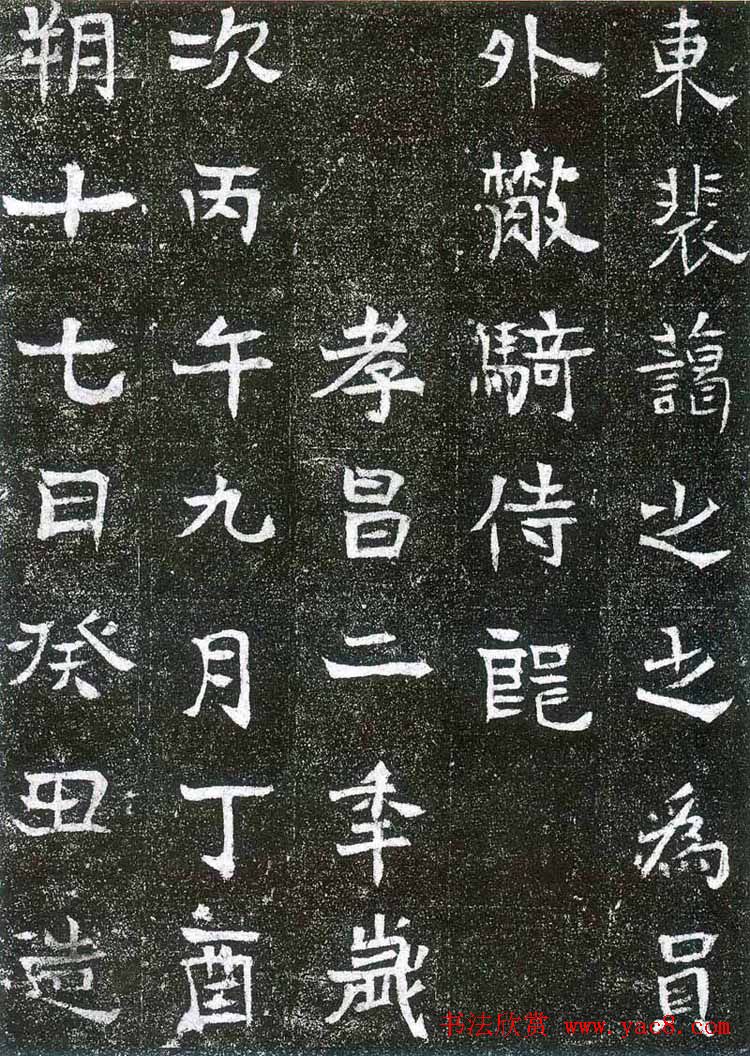 東裴譪之之為員
外散騎侍郎
孝昌二年歲
次丙午九月丁酉
朔十七日癸丑造
书法欣赏 www.yac8.com